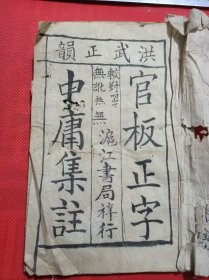 洪武正韻
官板正字
較對畧無訛無
滬江書局梓行
中庸集註